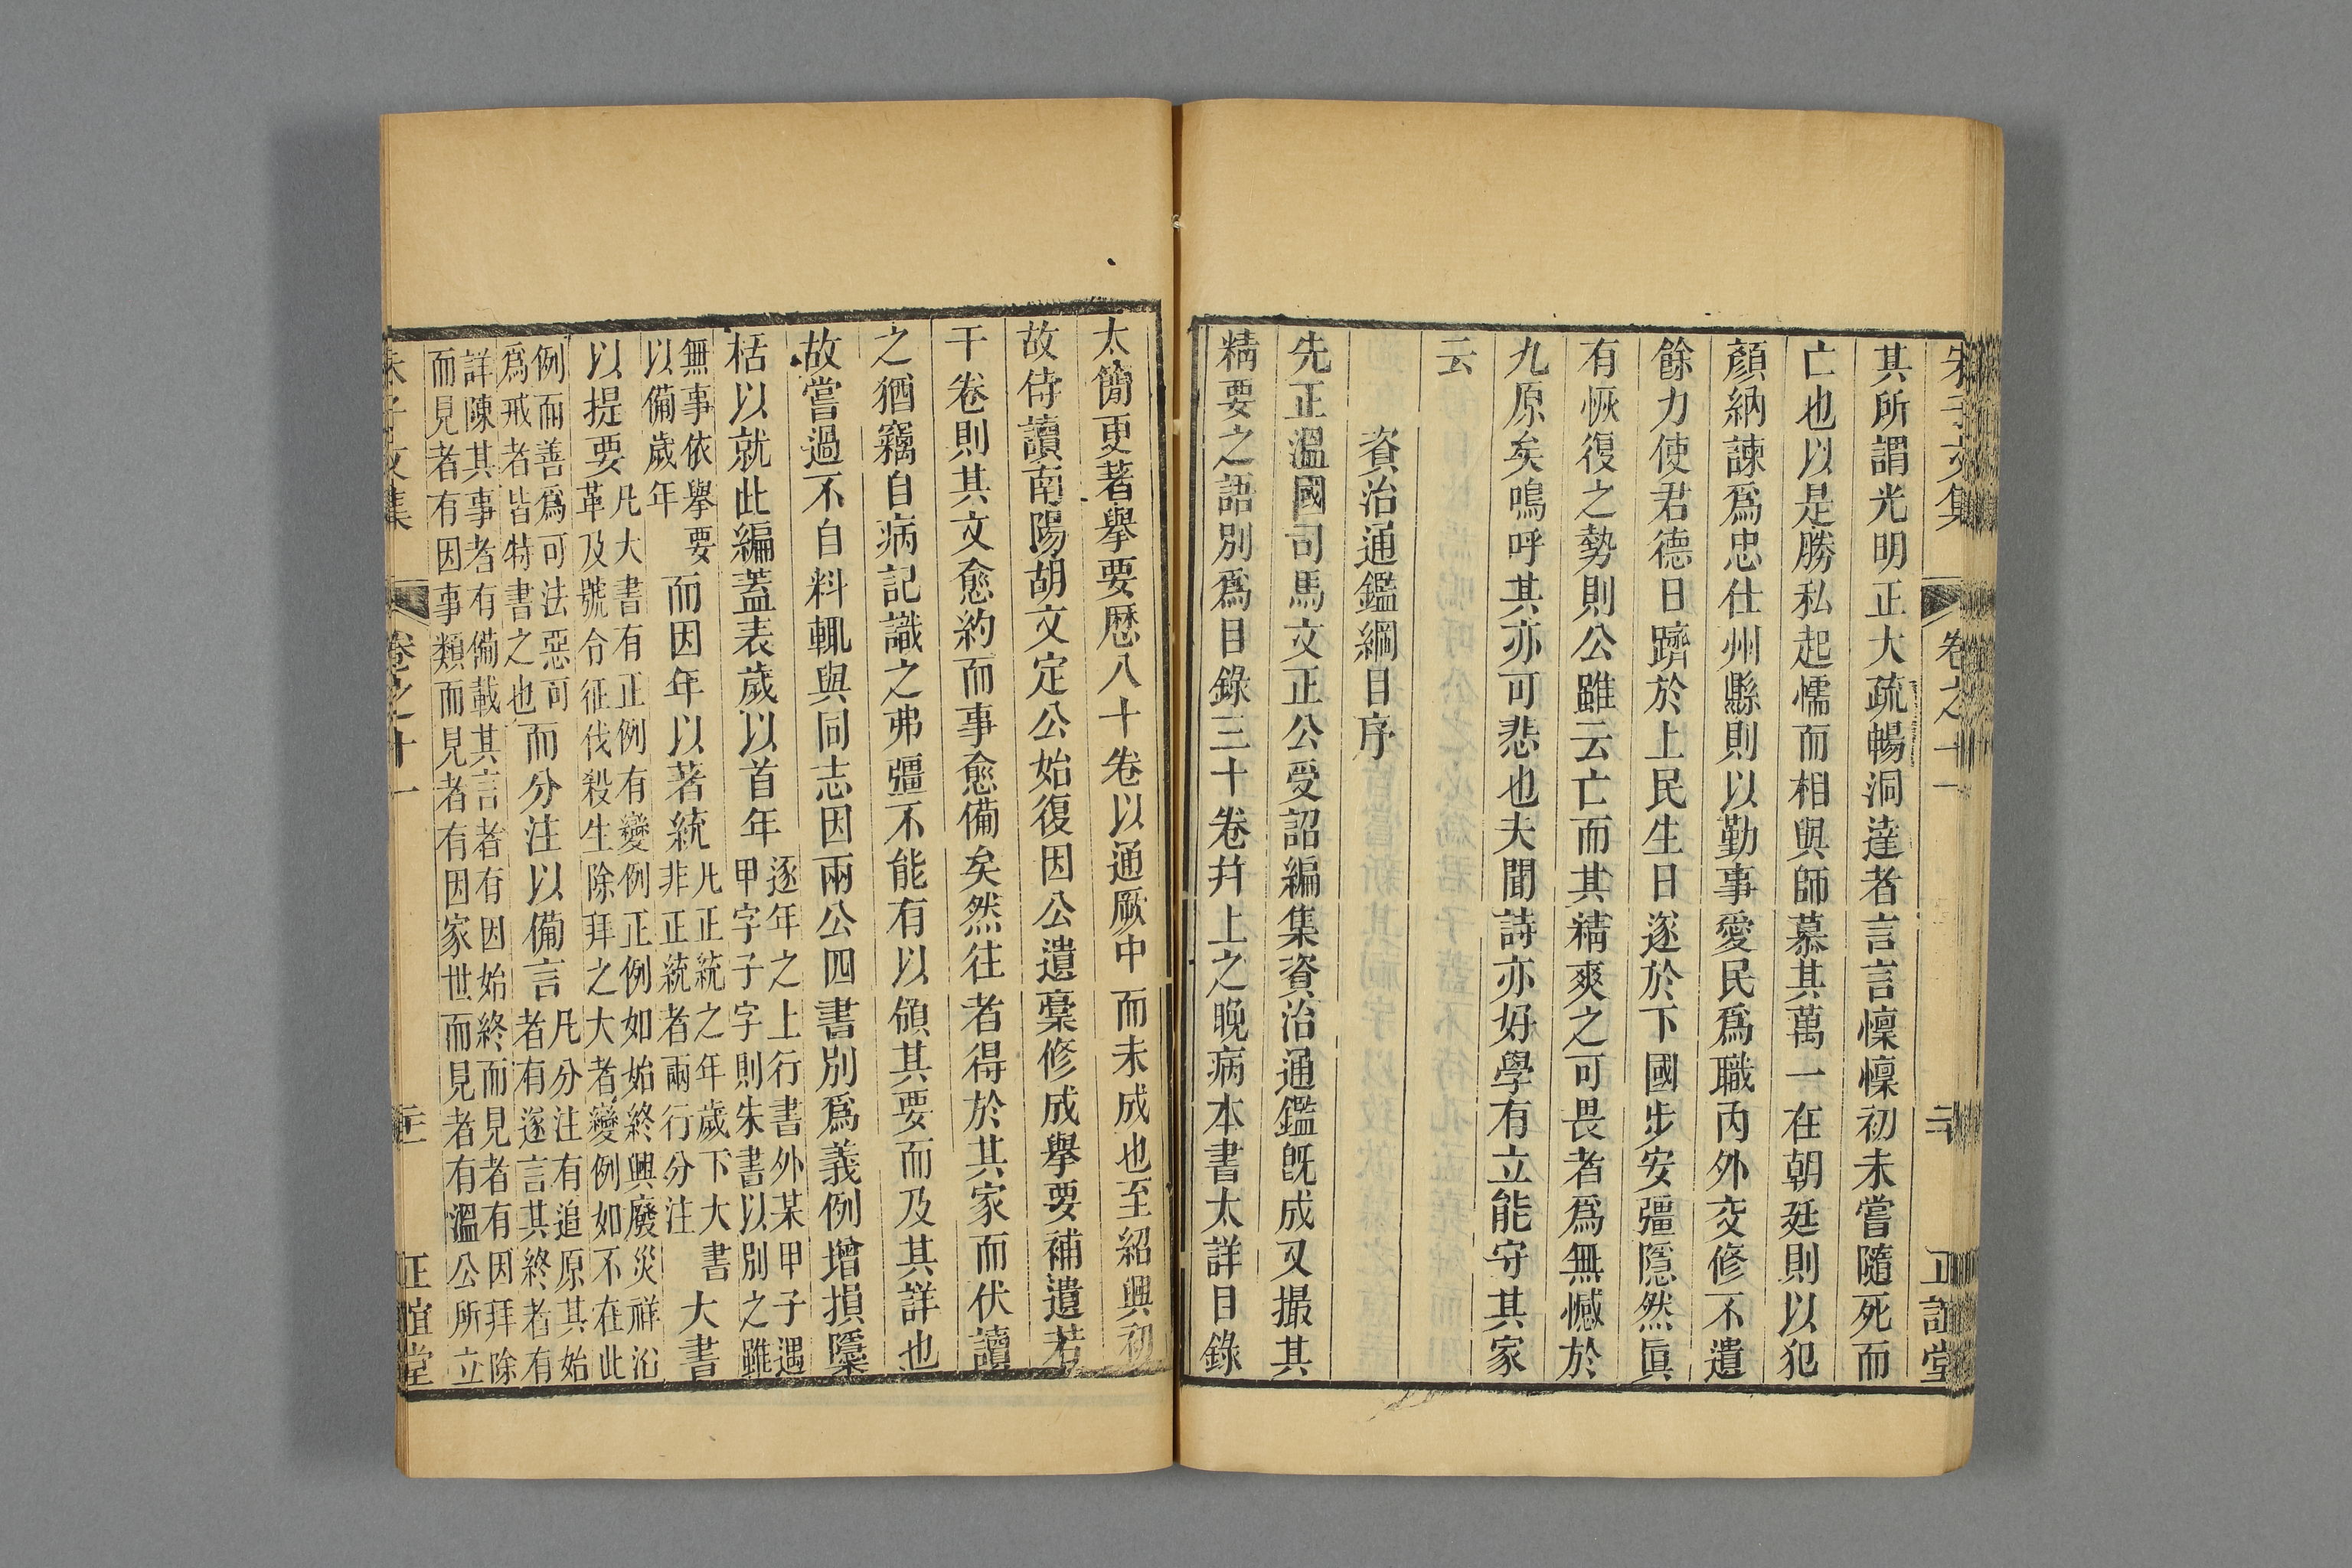 其所謂光明正大疏暢洞達者言言懍懍初未嘗隨死而
亡也以是勝私起懦而相與師慕其萬一在朝廷則以犯
顏納諫爲忠仕州縣則以勤事愛民爲職丙外交修不遺
餘力使君德日躋於上民生日遂於下國步安彊隱然眞
有恢復之勢則公雖云亡而其精爽之可畏者爲無憾於
九原矣嗚呼其亦可悲也夫聞詩亦好學有立能守其家
云
資治通鑑綱目序
先正溫國司馬文正公受詔編集資治通鑑旣成又撮其
精要之語別爲目錄三十卷幷上之晚病本書太詳目錄
太簡更著擧要歷八十卷以適厥中而未成也至紹興初
故侍讀南陽胡文定公始復因公遺藁修成擧要補遺若
干卷則其文愈約而事愈備矣然往者得於其家而伏讀
之猶竊自病記識之弗彊不能有以領其要而及其詳也
故嘗過不自料輒與同志因兩公四書別爲義例增損隱
栝以就此編蓋表歲以首年
逐年之上行書外某甲子遇
甲字子字則朱書以別之雖
無事依擧要
以備歲年
而因年以著統
凡正統之年歲下大書
非正統者兩行分注
大書
以提要
凡大書有正例有變例正例如始終興廢災祥沿
革及號令征伐殺生除拜之大者變例如不在此
例而善爲可法惡可
爲戒者皆特書之也
而分注以備言
凡分注有追原其始
者有遂言其終者有
詳陳其事者有備載其言者有因始終而見者有因拜除
而見者有因事類而見者有因家世而見者有溫公所立
朱子文集
卷之十一
正誼堂